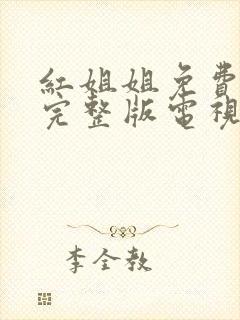 紅姐姐免費
完整版電視
李全教